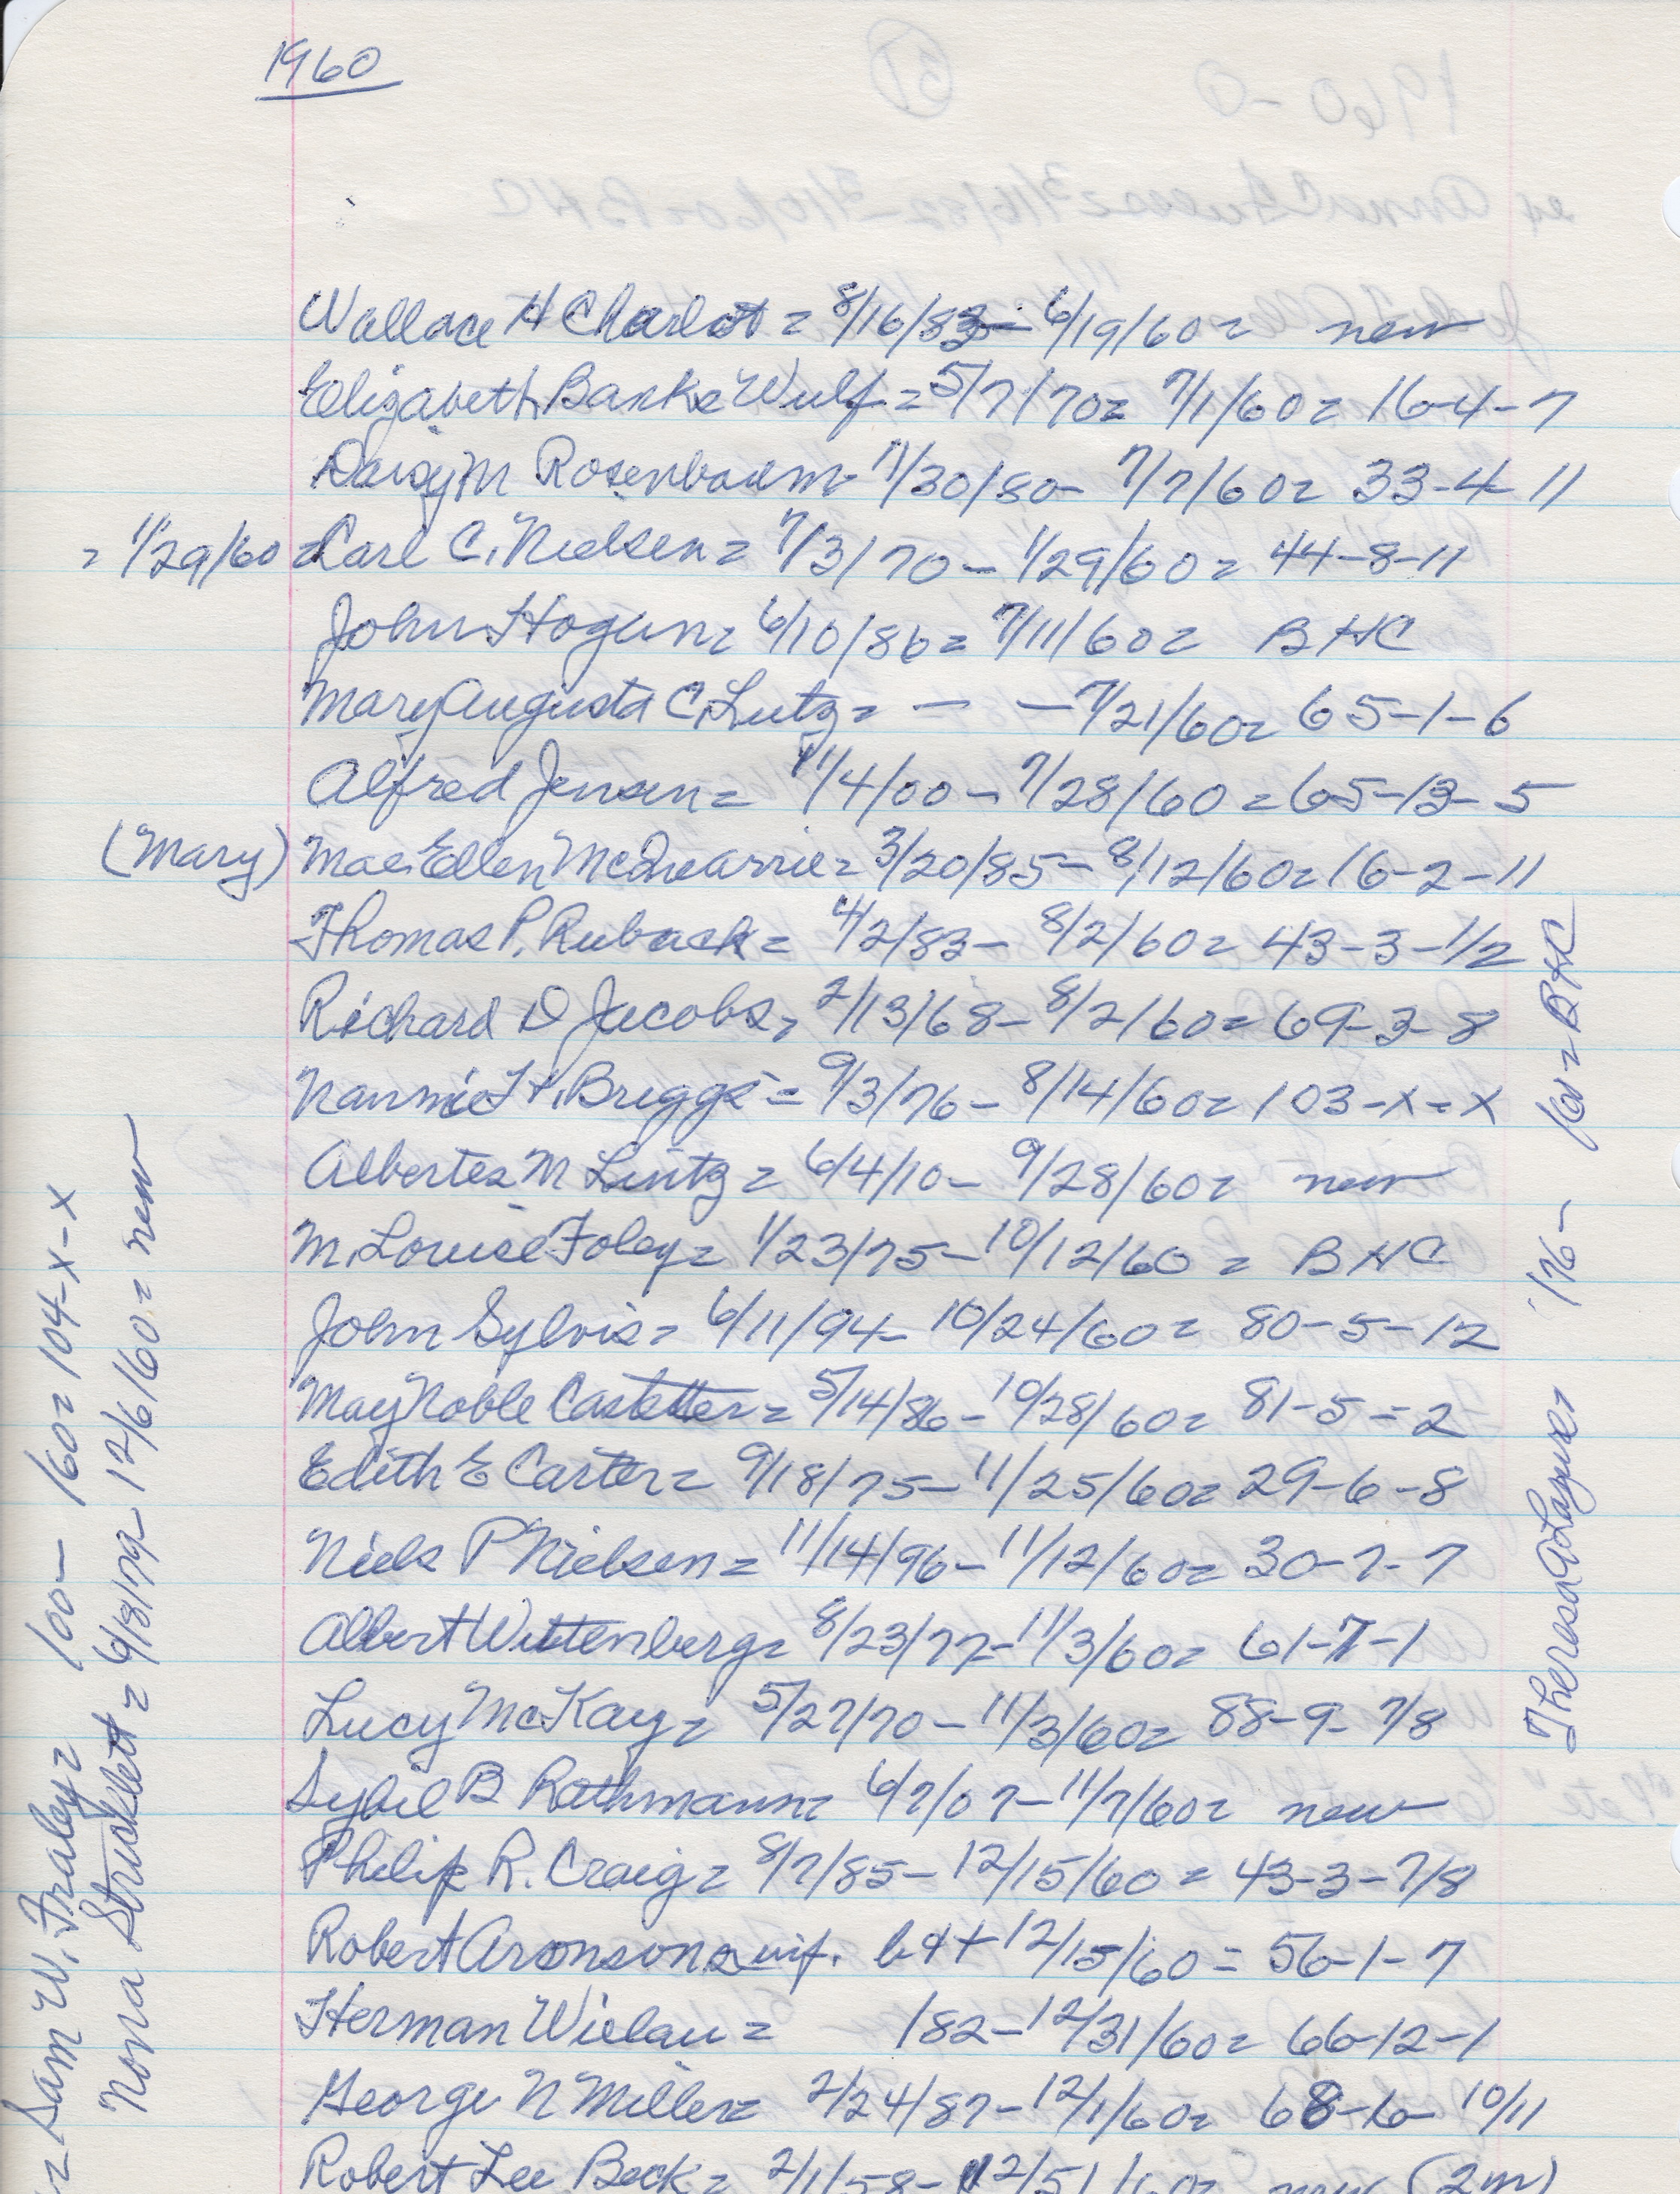 1960
Wallace H Charlot = 8/16/83 - 6/19/60 = new
Elizabeth Banke Wulf = 5/7/70 = 7/1/60 = 16-4-7
Daisy M Rosenbaum - 11/30/80 - 7/7/60 = 33-4-11
= 1/29/60 = Carl C. Nielsen = 7/3/70 - 1/29/60 = 44-8-11
John Hogun = 6/10/86 = 7/11/60 = BHC
Mary Augusta C. Lutz = - - 7/21/60 = 65-1-6
Alfred Jensen = 11/4/00 - 7/28/60 = 65-13-5
(Mary) Mae Ellen McQuarrie = 3/20/85 - 8/12/60 = 16-2-11
Thomas P. Ruback = 4/2/83 - 8/2/60 = 43-3-1/2
Richard D Jacobs = 2/13/68 - 8/2/60 = 69-3-8
Nannie H. Briggs = 9/3/76 - 8/14/60 = 103-x-x
Albertes M Lintz = 6/4/10 - 9/28/60 = new
M. Louise Foley = 1/23/75 - 10/12/60 = BHC
John Sylvis = 6/11/94 - 10/24/60 = 80-5-12
May Noble Castetter = 5/14/86 - 10/28/60 = 81-5-2
Edith E Carter = 9/18/75 - 11/25/60 = 29-6-8
Niels P Nielsen = 11/14/96 - 11/12/60 = 30-7-7
Albert Wittenberg = 8/23/77 - 11/3/60 = 61-7-1
Lucy McKay = 5/27/70 - 11/3/60 = 88-9-7/8
Sybil B Rothmann = 6/7/07 - 11/7/60 = new
Philip R. Craig = 8/7/85 - 12/15/60 = 43-3-7/8
Robert Aronson = inf. b&+ 12/15/60 = 56-1-7
Herman Wielau = /82 - 12/31/60 = 66-12-1
George N Miller = 2/24/87 - 12/1/60 = 68-6-10/11
Robert Lee Beck = 2/1/58 - 12/51/60 = new (2m)
= Sam W. Fraley = 100 - 160 = 104-x-x
Nona Stricklett = 6/8/79 - 12/6/60 = new
= Theresa 176 - 160 = BHC